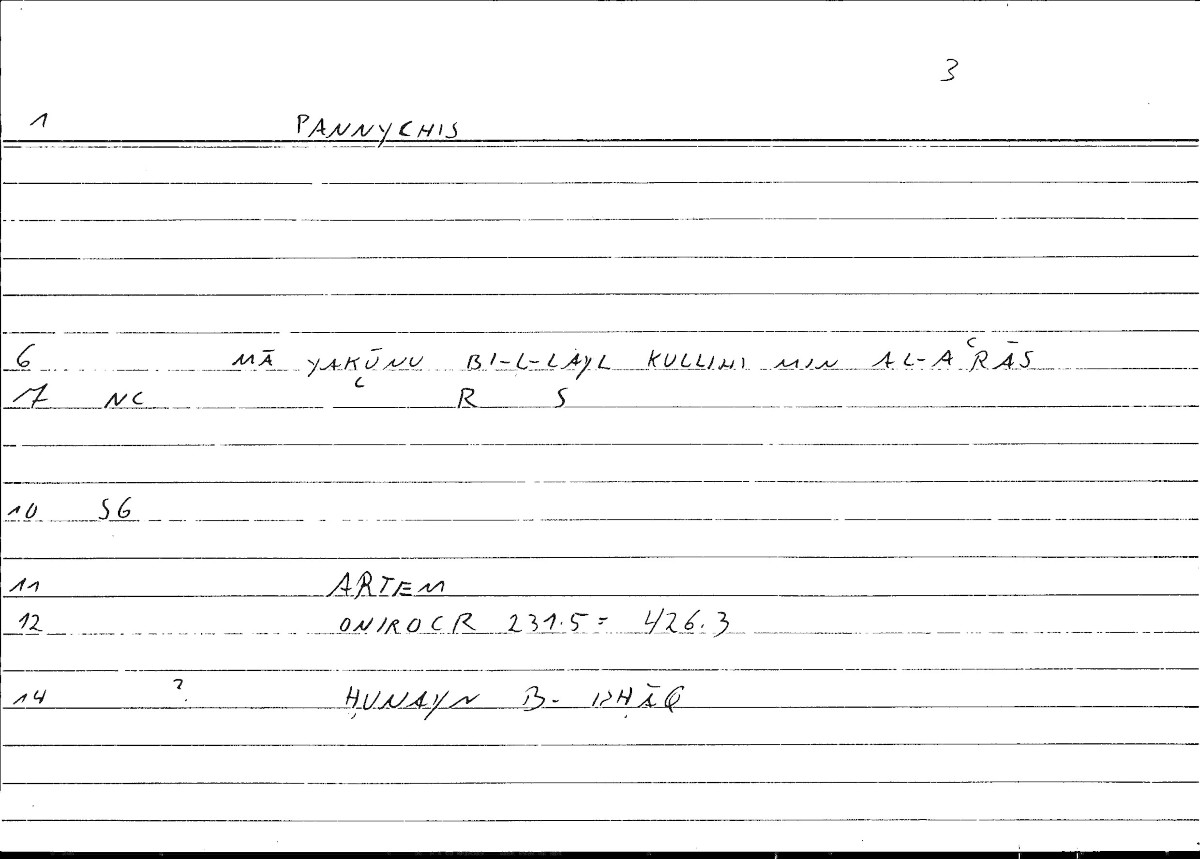 3
1 PANNYCHIS
6 MĀ YAKŪNU BI-L-LAYL KULLIHI MIN AL-AʿRĀS
7 NC ʿ R S
10 SG
11 ARTEM
12 ONIROCR 231.5 = 426.3
14 ? ḤUNAYN B- ISḤĀQ